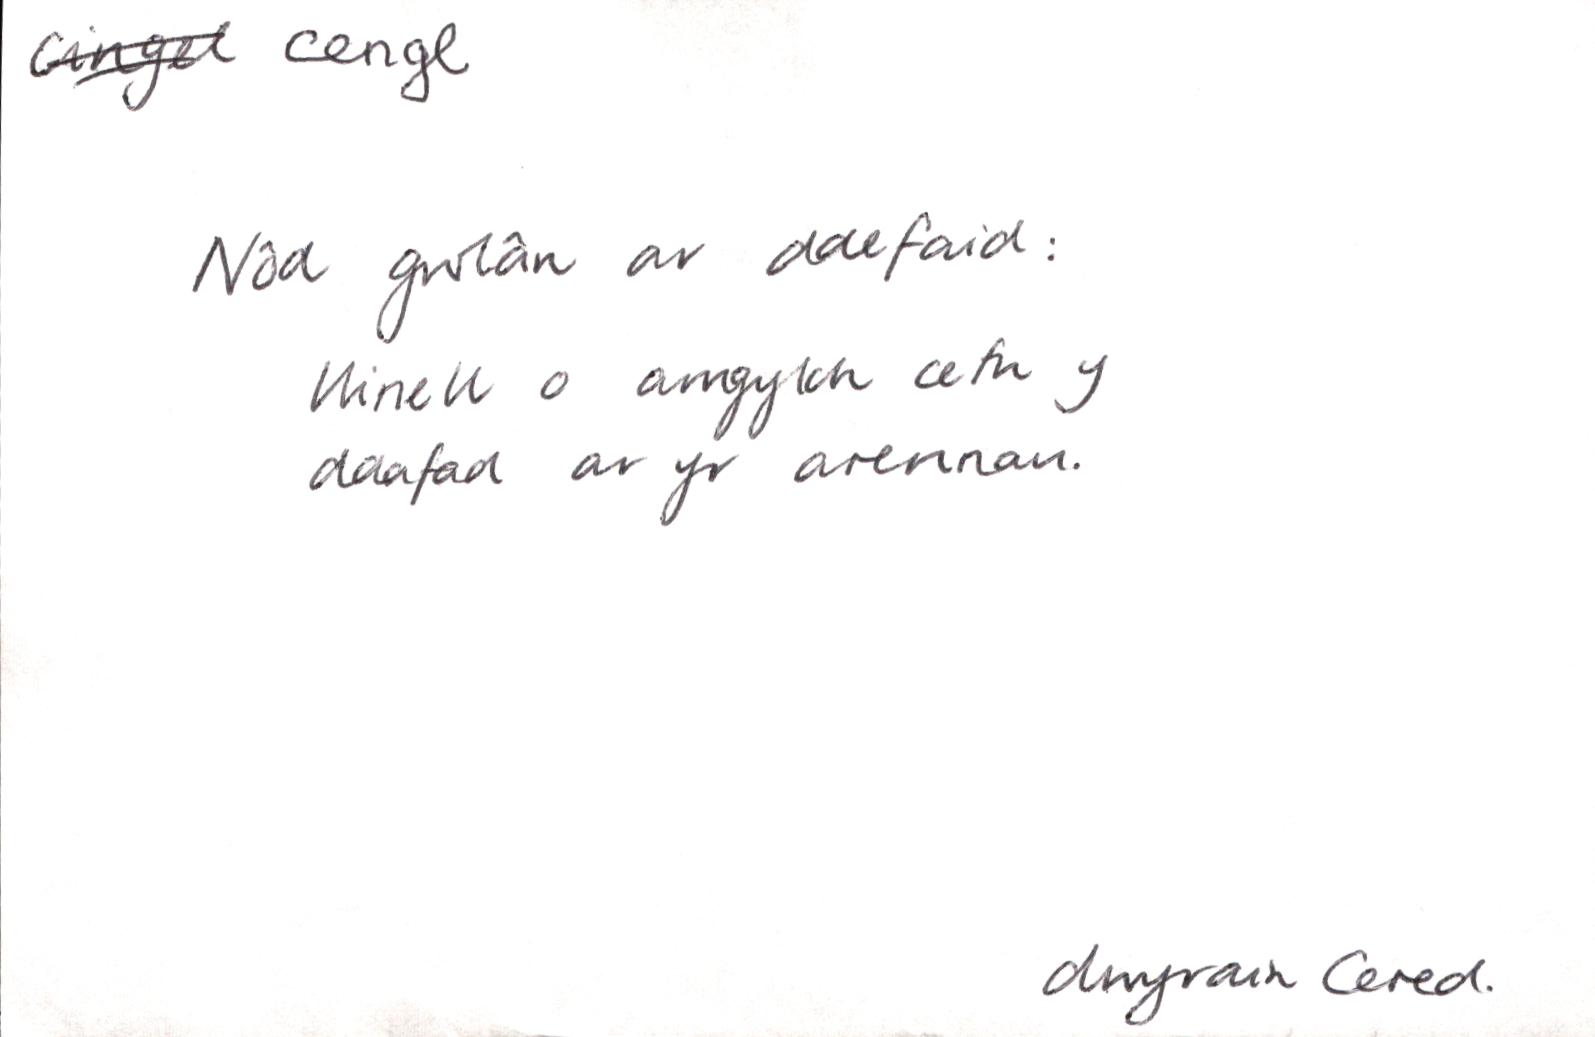 cingel cengl
Nôd gwlân ar ddefaid:
llinell o amgylch cefn y
ddafad ar yr arennau.
dwyrain Cered.